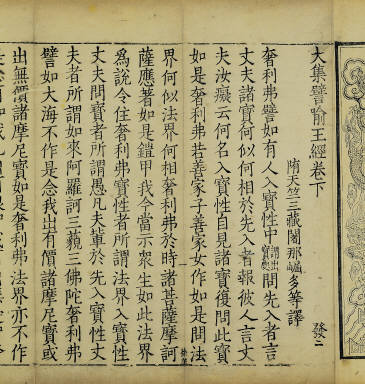 大集譬喻王經卷下
隋天竺三藏闍那崛多等譯 發二
奢利弗譬如有人入寶性中謂出寶處問先入者言
丈夫諸寶何似何相於先入者報彼人言丈
夫汝癡云何名入寶性自見諸寶復問此寶
如是奢利弗若善家子善家女作如是問法
界何似法界何相奢利弗於時諸菩薩摩訶
薩應著如是鎧甲我今當示衆生如此法界
爲說令住奢利弗寶性者所謂法界入寶性
丈夫問寶者所謂愚凡夫輩於先入寶性丈
夫者所謂如來阿羅訶三藐三佛陀奢利弗
譬如大海不作是念我出有價諸摩尼寶或
出無價諸摩尼寶如是奢利弗法界亦不作